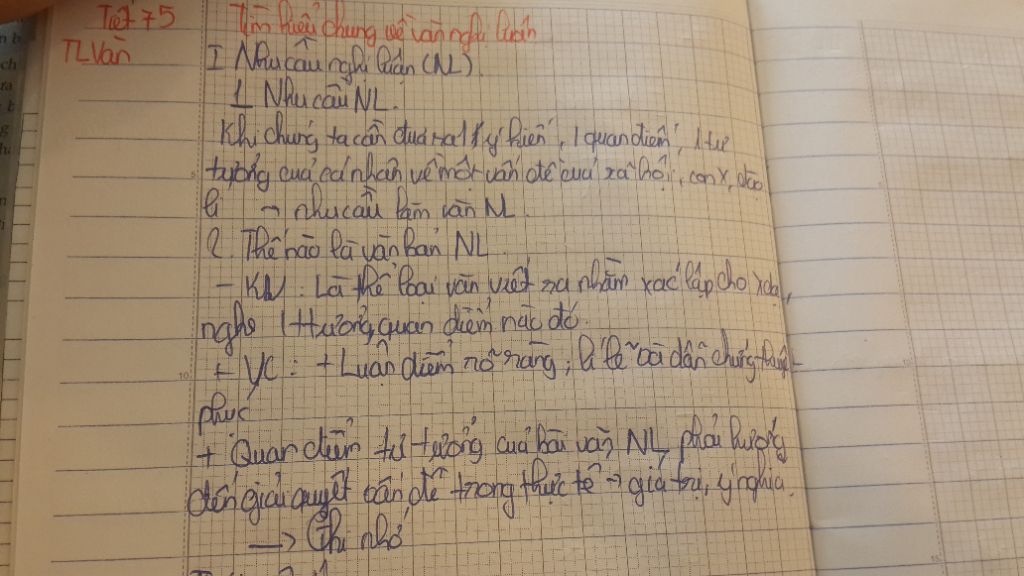 Tiết 75 Tìm hiểu chung về văn nghị luận
TLVăn
I Nhu cầu nghị luận (NL)
1 Nhu cầu NL.
Khi chúng ta cần đưa ra 1 ý kiến, 1 quan điểm, 1 tư
tưởng của cá nhân về một vấn đề của xã hội, con x, đạo
lí → nhu cầu làm văn NL
2. Thế nào là văn bản NL
- KN: Là thể loại văn viết ra nhằm xác lập cho
nghe 1 tt tưởng, quan điểm nào đó.
+ YC: + Luận điểm rõ ràng; lí lẽ và dẫn chứng thuyết
phục
+ Quan điểm tư tưởng của bài văn NL phải hướng
đến giải quyết vấn đề trong thực tế → giá trị, ý nghĩa.
→ Ghi nhớ